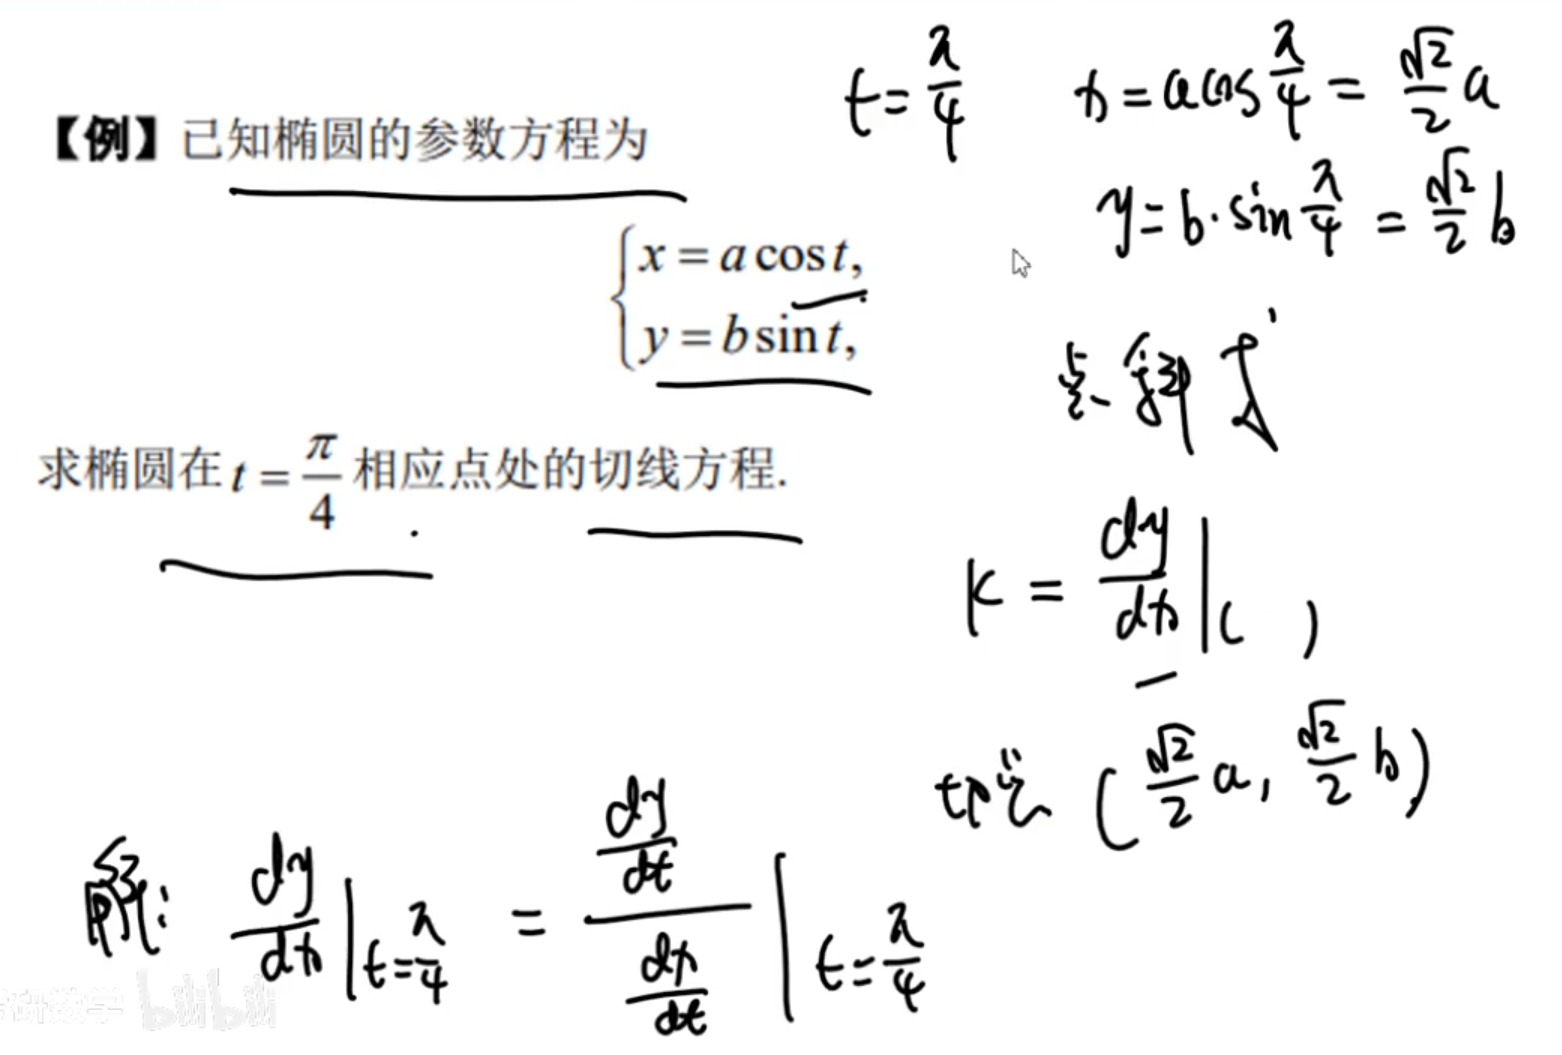 【例】已知椭圆的参数方程为
x = a cos t,
y = b sin t,
求椭圆在 t = π/4 相应点处的切线方程.
t = π/4  x = a cos π/4 = √2/2 a
y = b · sin π/4 = √2/2 b
点斜式
k = dy/dx |( )
切点 (√2/2 a, √2/2 b)
解: dy/dx | t = π/4 = dy/dt / dx/dt | t = π/4
考研数学 bilibili